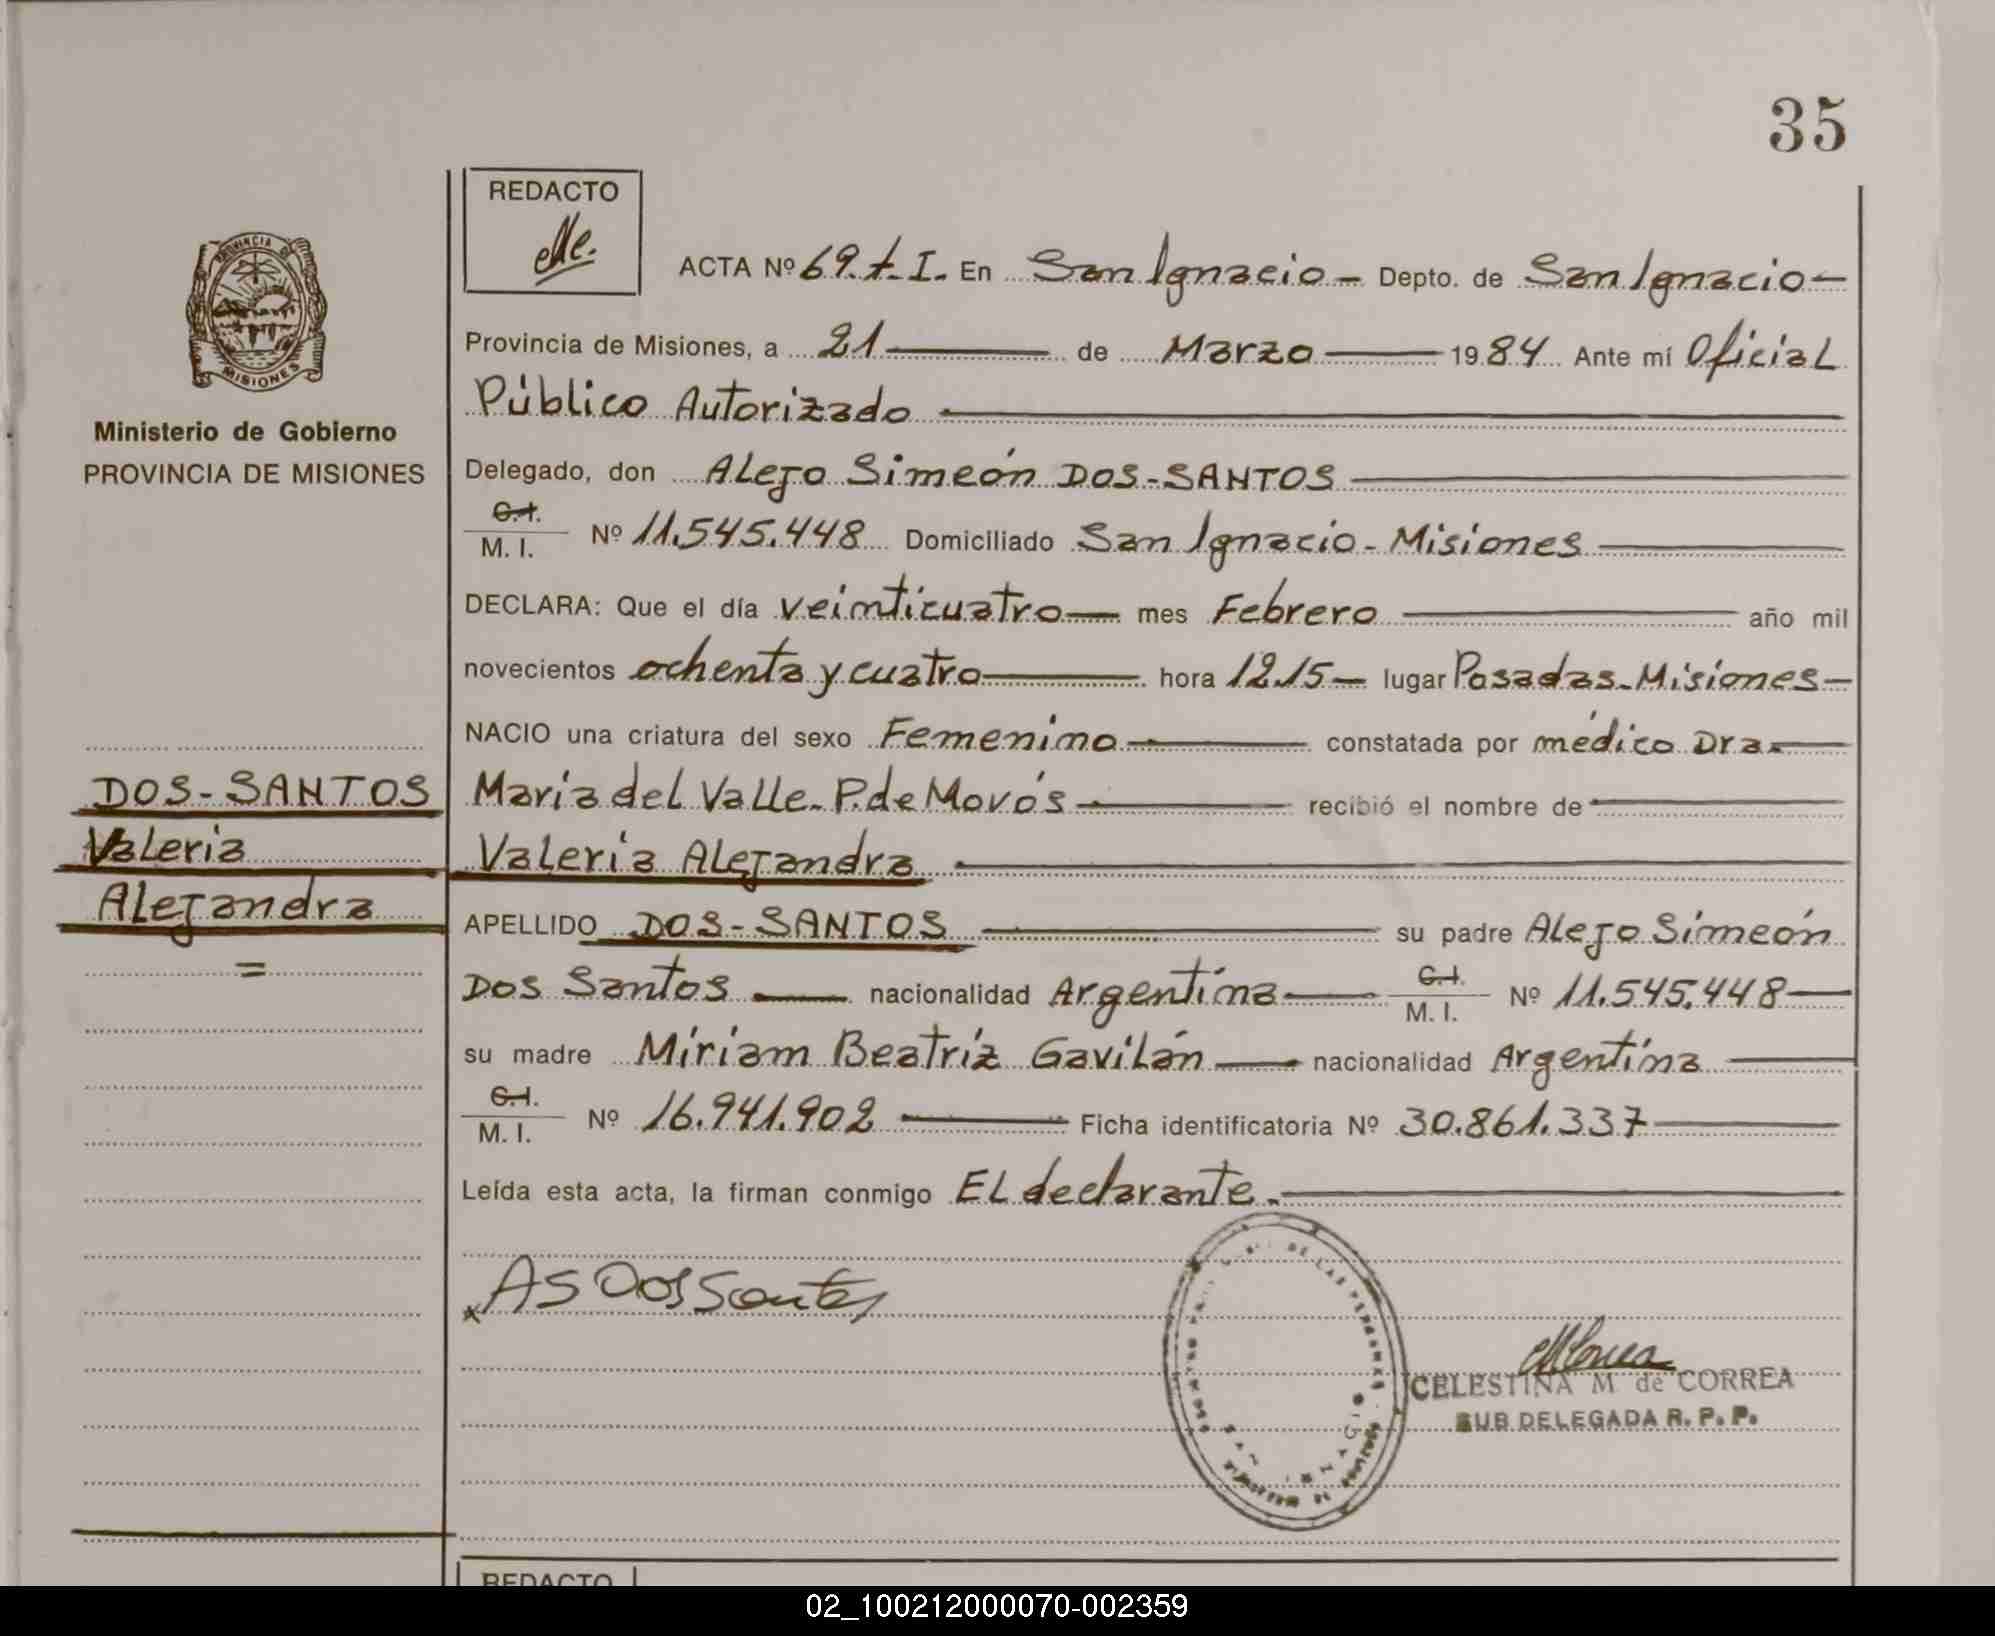 35
REDACTO
ACTA Nº 69.t.I. En San Ignacio - Depto. de San Ignacio -
Provincia de Misiones, a 21 de Marzo 1984 Ante mí Oficial
Público Autorizado
Delegado, don Alejo Simeón DOS-SANTOS
C.I.
M. I. Nº 11.545.448 Domiciliado San Ignacio - Misiones
DECLARA: Que el día veinticuatro mes Febrero año mil
novecientos ochenta y cuatro hora 12.15 lugar Posadas - Misiones -
NACIO una criatura del sexo Femenino constatada por médico Dra.
María del Valle P. de Movós recibió el nombre de
Valeria Alejandra
APELLIDO DOS-SANTOS su padre Alejo Simeón
Dos Santos nacionalidad Argentina C.I. M. I. Nº 11.545.448
su madre Miriam Beatríz Gavilán nacionalidad Argentina
C.I.
M. I. Nº 16.941.902 Ficha identificatoria Nº 30.861.337
Leída esta acta, la firman conmigo El declarante.
x AS Dos Santos
CELESTINA M. de CORREA
SUB DELEGADA R. P. P.
PROVINCIA DE
MISIONES
Ministerio de Gobierno
PROVINCIA DE MISIONES
DOS-SANTOS
Valeria
Alejandra
=
REDACTO
02_100212000070-002359